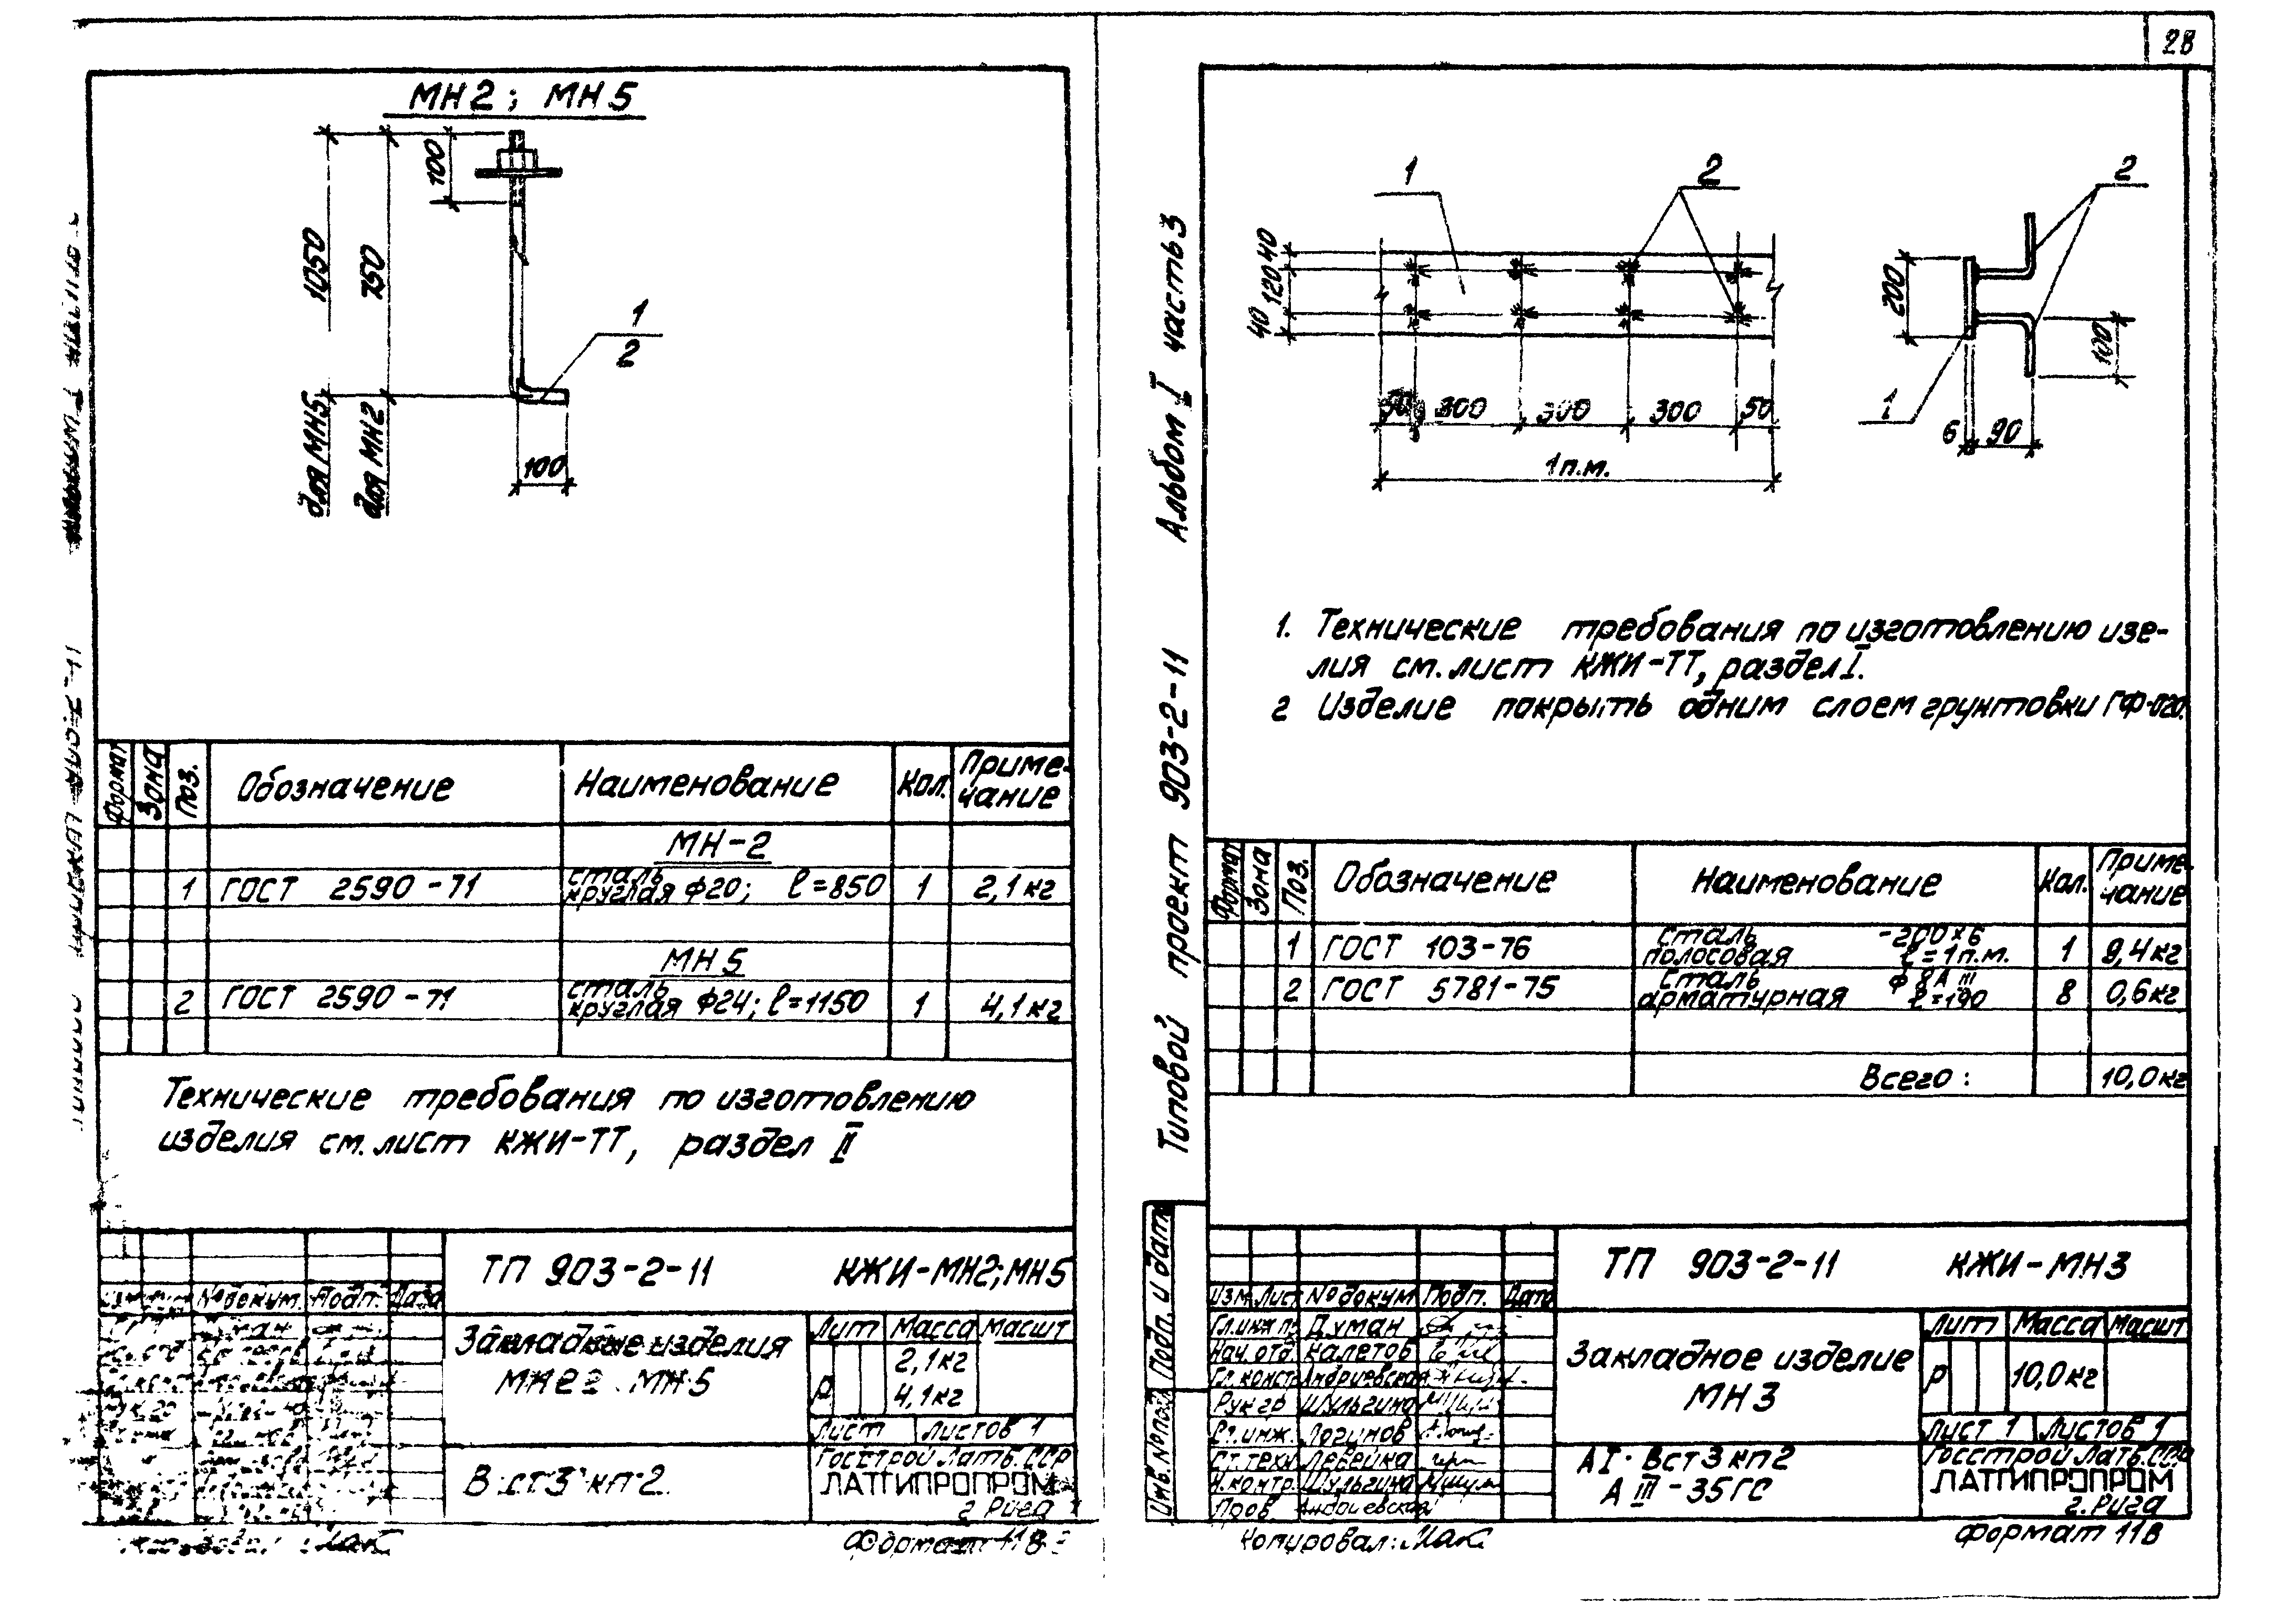 28
МН2; МН5
100
1050
750
для МН5
для МН2
1
2
100
Формат Зона Поз. Обозначение Наименование Кол. Приме-
чание
МН-2
1 ГОСТ 2590-71 сталь
круглая ф20; ℓ=850 1 2,1кг
МН5
2 ГОСТ 2590-71 сталь
круглая ф24; ℓ=1150 1 4,1кг
Технические требования по изготовлению
изделия см. лист КЖИ-ТТ, раздел II
ТП 903-2-11 КЖИ-МН2; МН5
№ докум. Подп. Дата
Закладные изделия
МН5
Лит Масса Масшт
Р 2,1кг
4,1кг
Лист Листов 1
В ст3 кп2
Госстрой Латв.ССР
ЛАТГИПРОПРОМ
г. Рига
Формат 11В
Типовой проект 903-2-11 Альбом I часть 3
1 2 2
40
120
40
50 300 300 300 50
1п.м.
200
100
1
6 90
1. Технические требования по изготовлению изде-
лия см. лист КЖИ-ТТ, раздел I.
2 Изделие покрыть одним слоем грунтовки ГФ-020.
Формат Зона Поз. Обозначение Наименование Кол. Приме-
чание
1 ГОСТ 103-76 сталь -200×6
полосовая ℓ=1п.м. 1 9,4кг
2 ГОСТ 5781-75 Сталь ф8АIII
арматурная ℓ=190 8 0,6кг
Всего: 10,0кг
Подп. и дата
Инв. № подл.
ТП 903-2-11 КЖИ-МН3
Изм. Лист № докум. Подп. Дата
Гл.инж.пр Думан
Нач.отд. Калетов
Гл.констр. Андриевская
Рук.гр. Шульгина
Ст.инж. Логинов
Ст.техн. Левейка
Н.контр. Шульгина
Пров. Андриевская
Закладное изделие
МН3
Лит Масса Масшт
Р 10,0кг
Лист 1 Листов 1
АI-Вст3кп2
АIII-35ГС
Госстрой Латв.ССР
ЛАТГИПРОПРОМ
г. Рига
Копировал: Мак
Формат 11В